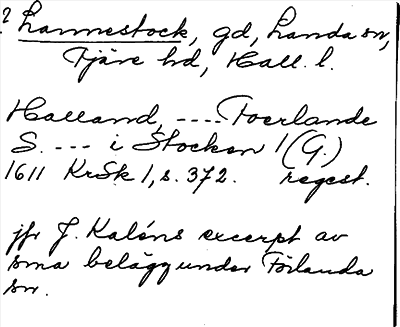 ? Lannestock, gd, Landa sn,
Fjäre hd, Hall. l.
Halland, ---- Foerlande
S. --- i Stocken 1 (G.)
1611 KrSk 1, s. 372. regest.
jfr J. Kaléns excerpt av
sma belägg under Förlanda
sn.